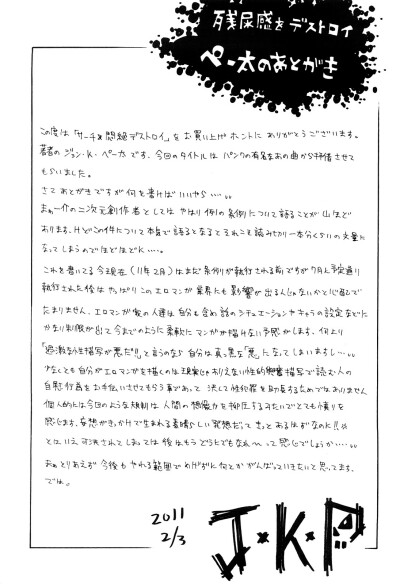 残尿感をデストロイ
ペー太のあとがき
この度は「サーチ&悶絶デストロイ」をお買い上げホントにありがとうございます。
著者のジョン・K・ペー太です、今回のタイトルはパンクの有名なあの曲から拝借させて
もらいました。
さてあとがきですが何を書けばいいやら……。
まぁ一介の二次元創作者としてはやはり例の条例について語ることが山ほど
あります。けどこの件について本気で語るとなるとそれこそ読み切り一本分くらいの文量に
なってしまうのでほどほどに……。
これを書いてる今現在(11年2月)はまだ条例が執行される前ですが7月に予定通り
執行された後はやっぱりこのエロマンガ業界にも影響が出るんじゃないかと心配で
たまりません。エロマンガ
は自分も含め話のシチュエーションやキャラの設定などに
かなり制限が出て今までのように柔軟にマンガが描けない予感がします。何より
「過激な性描写が悪だ!!」と言うのなら自分は真っ黒な「悪」になってしまいますし……。
少なくとも自分がエロマンガを描くのは現実じゃありえない性的
描写で読む人の
自慰行為をお手伝いさせてもらう事であって決して性犯罪を助長するためではありません
個人的には今回のような規制は人間の想像力を抑圧するみたいでとても憤りを
感じます。妄想がきっかけで生まれる素晴らしい発想だってきっとあるはずなのに!!
とはいえ可決されてしまっては後はもうどうにでもなれ〜って感じでしょうか……。
まぁとりあえず今後もやれる範囲でめげずに何とかがんばっていきたいと思ってます。
では。
2011
2/3
J・K・P